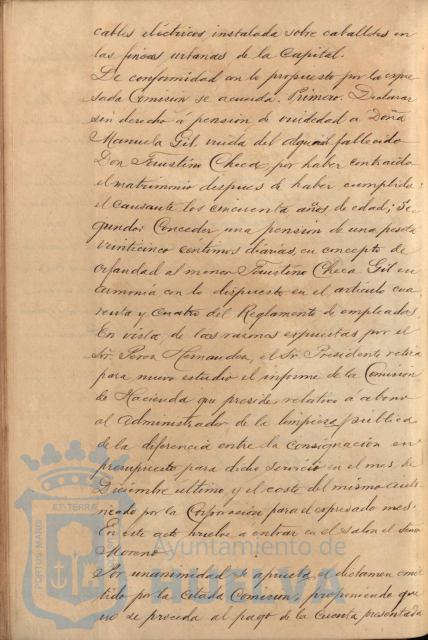 cables eléctricos instalada sobre caballetes en
las fincas urbanas de la Capital.
De conformidad con lo propuesto por la expre
sada Comision se acuerda. Primero. Declarar
sin derecho á pensión de viudedad a Doña
Manuela Gil, viuda del alguacil fallecido
Don Faustino Checa, por haber contraido
el matrimonio despues de haber cumplido
el causante los cincuenta años de edad; Se
gundo: Conceder una pensión de una peseta
veinticinco centimos diarias, en concepto de
orfandad al menor Faustino Checa Gil en
armonia con lo dispuesto en el articulo cua
renta y cuatro del Reglamento de empleados.
En vista de las razones expuestas por el
Sr. Perez Hernandez, el Sr. Presidente retira
para nuevo estudio el informe de la Comisión
de Hacienda que preside relativo a abono
al Administrador de la limpieza pública
de la diferencia entre la consignación en
presupuesto para dicho servicio en el mes de
Diciembre ultimo, y el coste del mismo auto
rizado por la Corporación para el expresado mes.
En este acto vuelve a entrar en el salon el Señor
Moreno
Por unanimidad se aprueba el dictamen emi
tido por la citada Comision, proponiendo que
no se proceda al pago de la cuenta presentada
PORTUS MARIS
ET TERRAE
Ayuntamiento de
HUELVA